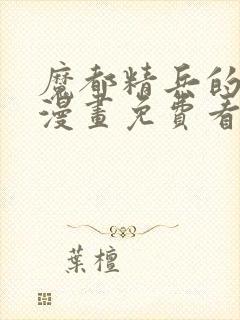 魔都精兵的
漫畫免費看
葉檀